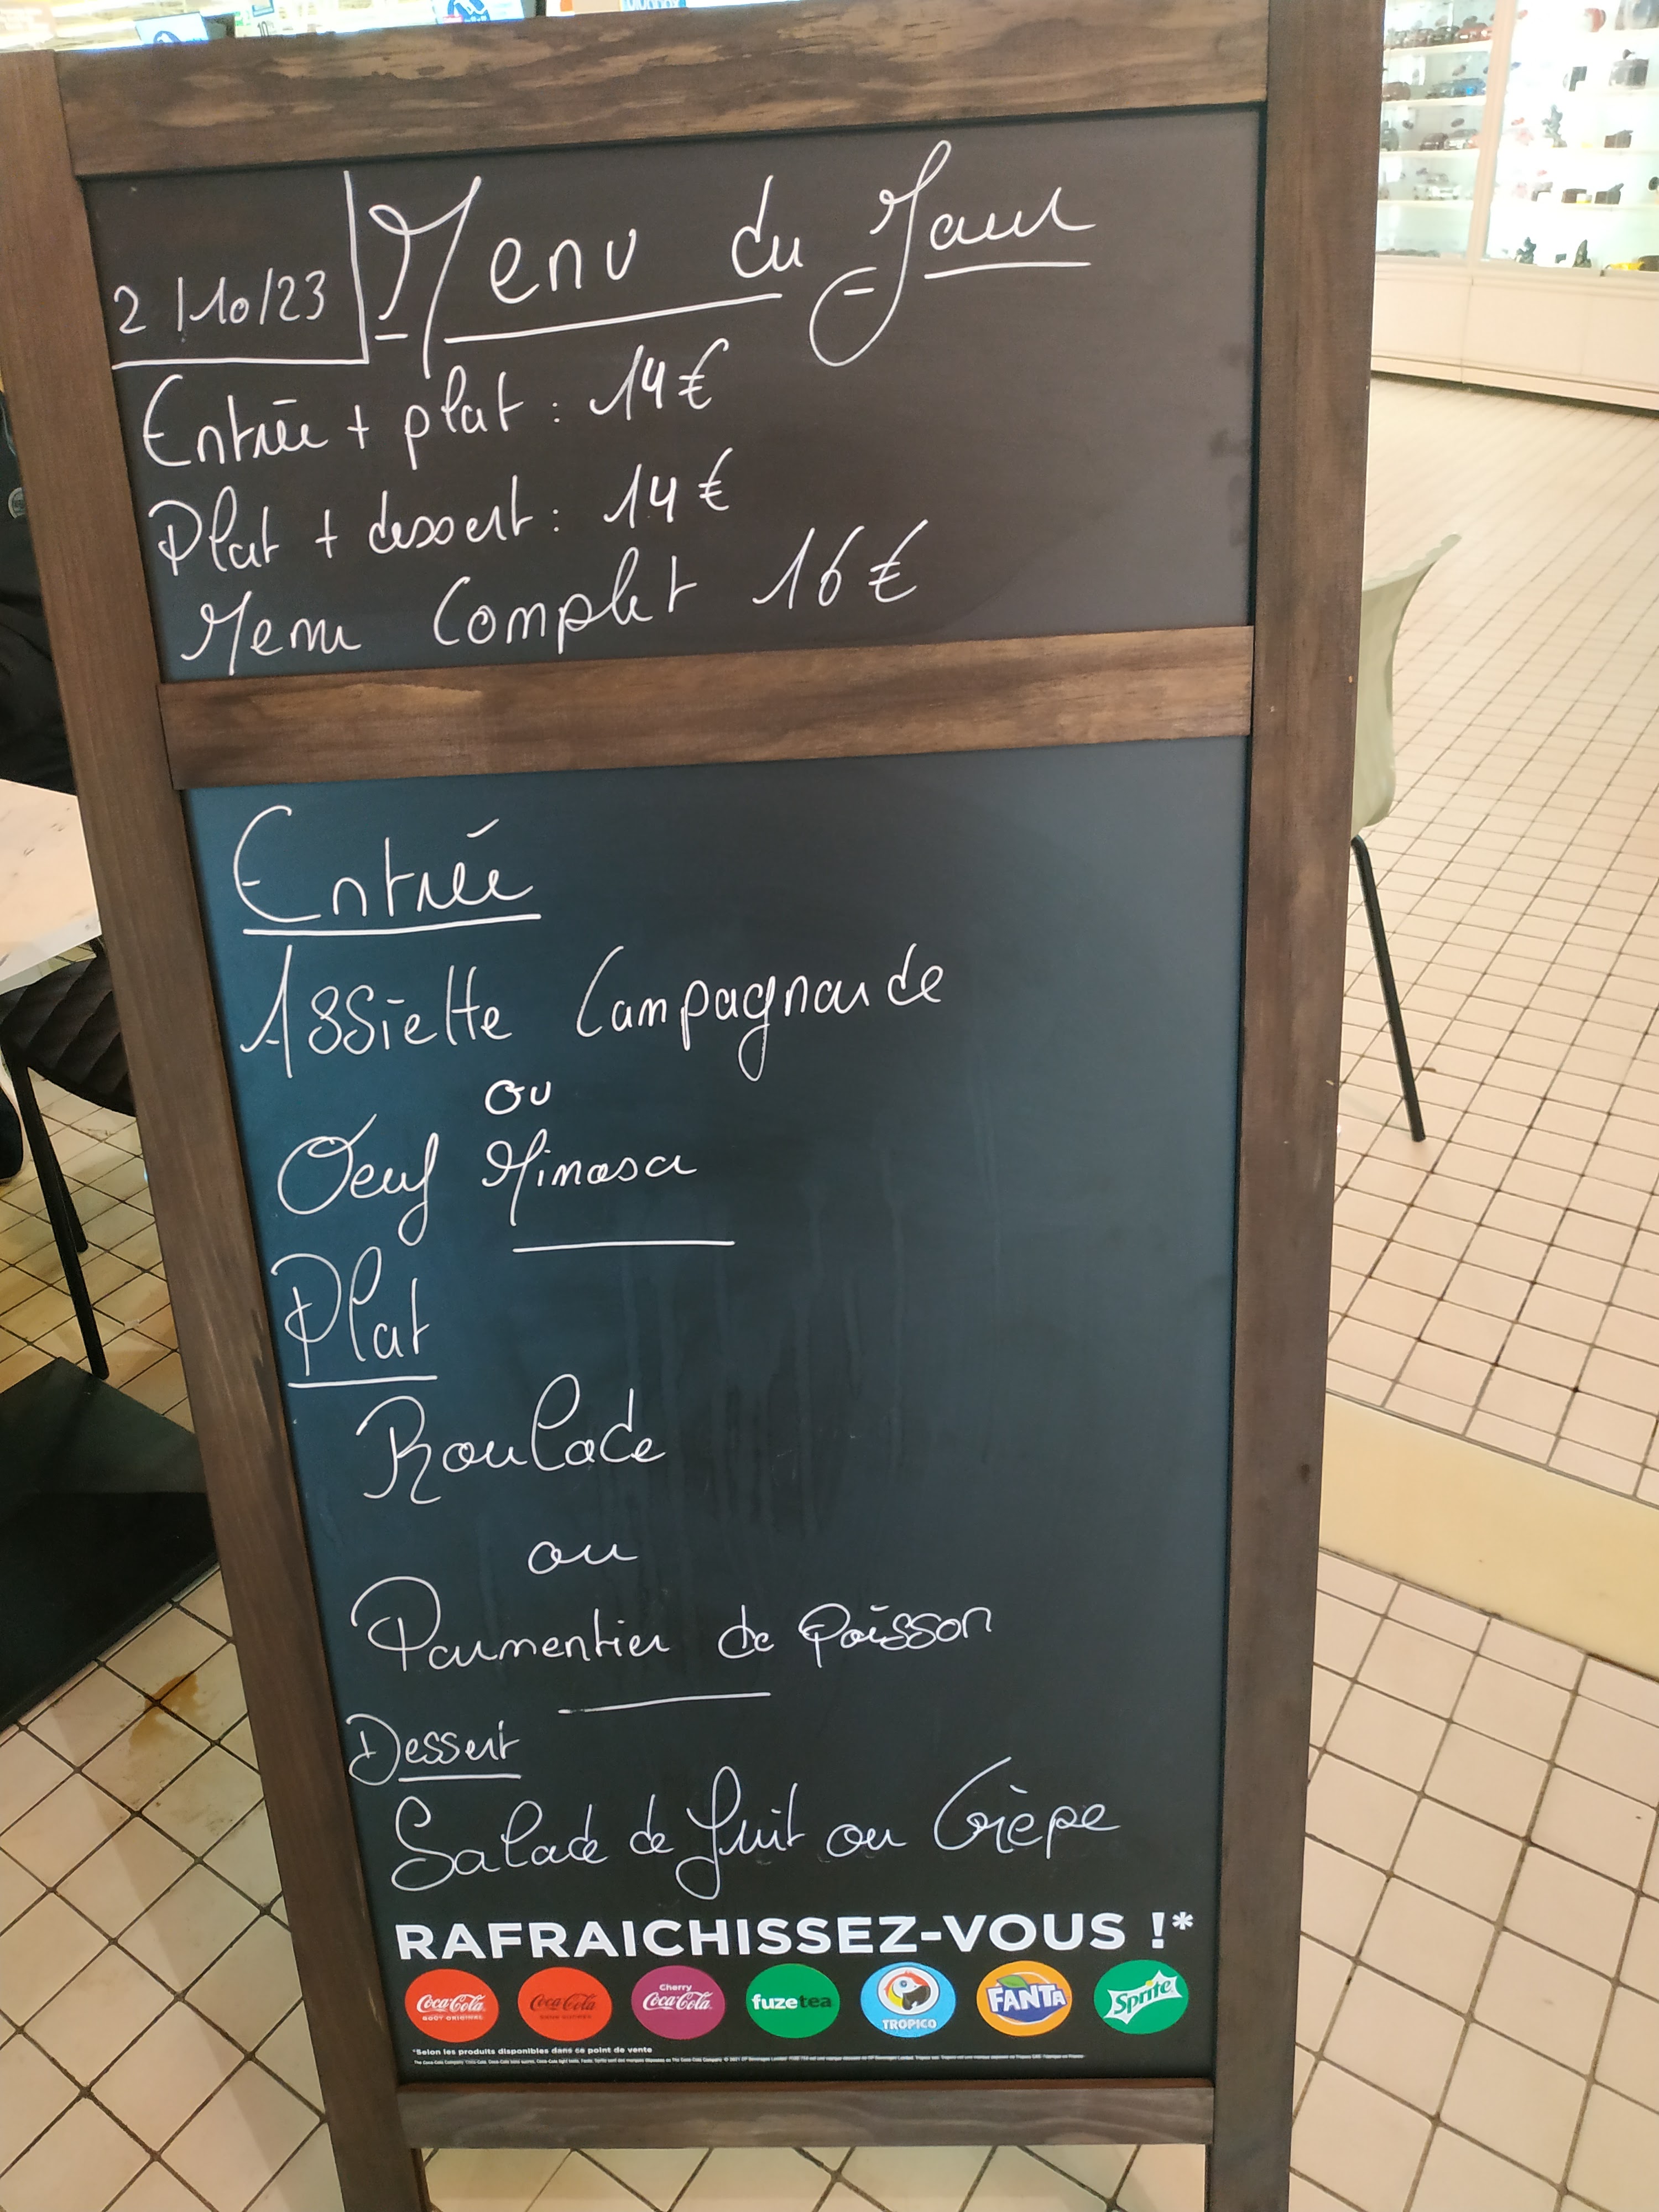 2/10/23
Menu du Jour
Entrée + plat : 14€
Plat + dessert : 14€
Menu Complet 16€
Entrée
Assiette Campagnarde
ou
Oeuf Mimosa
Plat
Roulade
ou
Parmentier de poisson
Dessert
Salade de fruit ou Crèpe
RAFRAICHISSEZ-VOUS !*
Coca-Cola GOÛT ORIGINAL
Coca-Cola
Cherry Coca-Cola
fuzetea
TROPICO
FANTA
Sprite
*Selon les produits disponibles dans ce point de vente